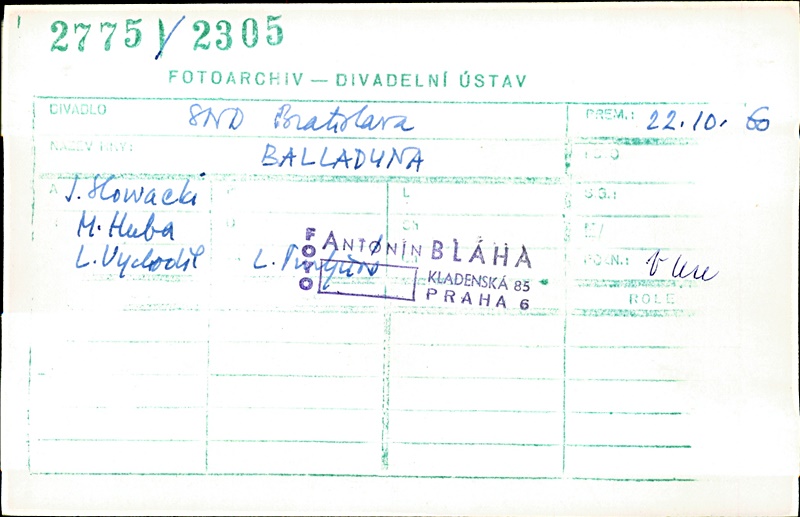 2775/2305
FOTOARCHIV — DIVADELNÍ ÚSTAV
DIVADLO SND Bratislava PREM.: 22.10.60
NÁZEV HRY: BALLADYNA FOTO
A J. Słowacki L SIG.:
M. Huba
L. Vychodil L. POZN.:
FOTO ANTONÍN BLÁHA
KLADENSKÁ 85
PRAHA 6
ROLE